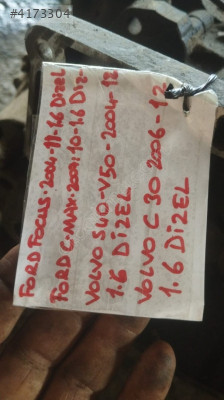 #4173304
FORD FOCUS-2004-11-1.6 DİZEL
FORD C-MAX-2007-10-1.6 DİZ-
VOLVO S40-V50-2004-12
1.6 DİZEL
VOLVO C30 2006-12
1.6 DİZEL